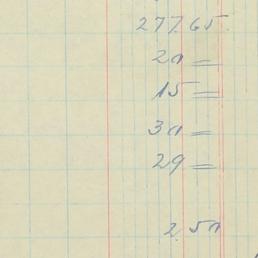 277.65
20 =
15 =
30 =
29 =
2.50